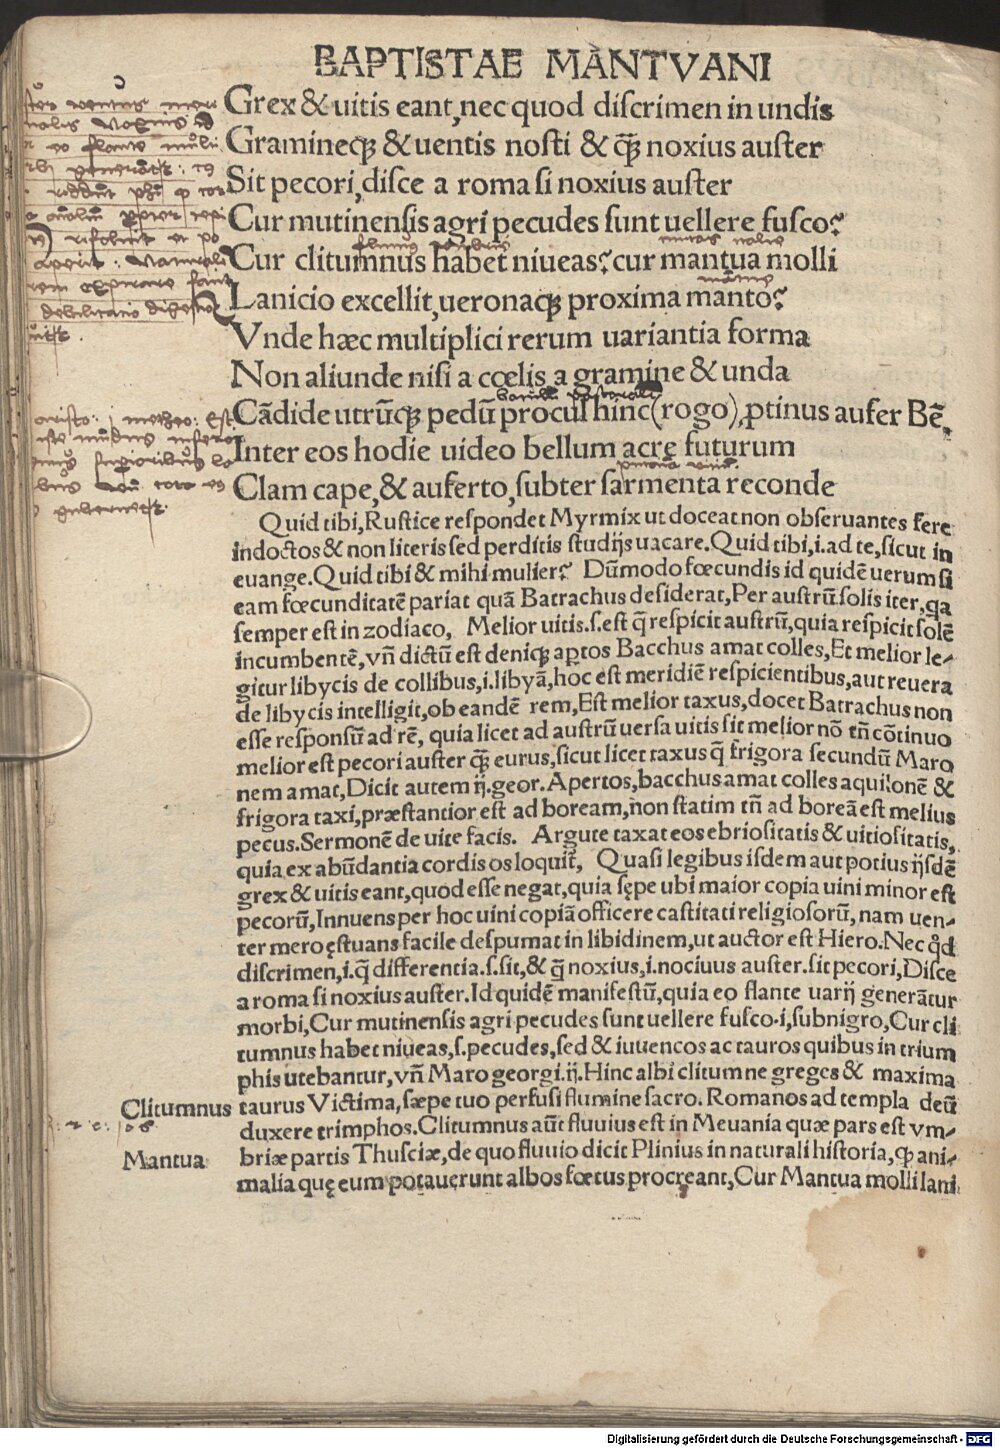 BAPTISTAE MANTVANI
Grex & uitis eant, nec quod discrimen in undis
Gramineqꝫ & uentis nosti & q̄ꝫ noxius auster
Sit pecori, disce a roma si noxius auster
Cur mutinensis agri pecudes sunt uellere fusco?
Cur clitumnus habet niueas? cur mantua molli
Lanicio excellit, ueronaqꝫ proxima manto?
Vnde hæc multiplici rerum uariantia forma
Non aliunde nisi a cœlis a gramine & unda
Cādide utrūcqꝫ pedū procul hinc (rogo) ꝓtinus aufer Bē.
Inter eos hodie uideo bellum acre futurum
Clam cape, & auferto, subter sarmenta reconde
Quid tibi, Rustice respondet Myrmix ut doceat non obseruantes fere
indoctos & non literis sed perditis studijs uacare. Quid tibi, i. ad te, sicut in
euange. Quid tibi & mihi mulier? Dūmodo fœcundis id quidē uerum si
eam fœcunditatē pariat quā Batrachus desiderat, Per austrū solis iter, qa
semper est in zodiaco, Melior uitis. s. est q̄ respicit austrū, quia respicit solē
incumbentē, vñ dictū est deniqꝫ aptos Bacchus amat colles, Et melior le-
gitur libycis de collibus, i. libyā, hoc est meridiē respicientibus, aut reuera
de libycis intelligit, ob eandē rem, Est melior taxus, docet Batrachus non
esse responsū ad rē, quia licet ad austrū uersa uitis sit melior nō tñ cōtinuo
melior est pecori auster q̄ꝫ eurus, sicut licet taxus q̄ frigora secundū Maro
nem amat, Dicit autem ij. geor. Apertos, bacchus amat colles aquilonē &
frigora taxi, præstantior est ad boream, non statim tñ ad boreā est melius
pecus. Sermonē de uite facis. Argute taxat eos ebriositatis & uitiositatis,
quia ex abūdantia cordis os loquit̃, Quasi legibus isdem aut potius ijsdē
grex & uitis eant, quod esse negat, quia sępe ubi maior copia uini minor est
pecorū, Innuens per hoc uini copiā officere castitati religiosorū, nam uen-
ter mero ęstuans facile despumat in libidinem, ut auctor est Hiero. Nec qd̓
discrimen, i. q̄ differentia. s. sit, & q̄ noxius, i. nociuus auster. sit pecori, Disce
a roma si noxius auster. Id quidē manifestū, quia eo flante uarij generātur
morbi, Cur mutinensis agri pecudes sunt uellere fusco. i, subnigro, Cur cli
tumnus habet niueas, s. pecudes, sed & iuuencos ac tauros quibus in trium
phis utebantur, vñ Maro georgi. ij. Hinc albi clitumne greges & maxima
Clitumnus taurus Victima, sæpe tuo perfusi flumine sacro. Romanos ad templa deū
duxere trimphos. Clitumnus aūt fluuius est in Meuania quæ pars est vm-
Mantua briæ partis Thusciæ, de quo fluuio dicit Plinius in naturali historia, ꝙ ani-
malia quę eum potauerunt albos fœtus procreant, Cur Mantua molli lani
Digitalisierung gefördert durch die Deutsche Forschungsgemeinschaft - DFG